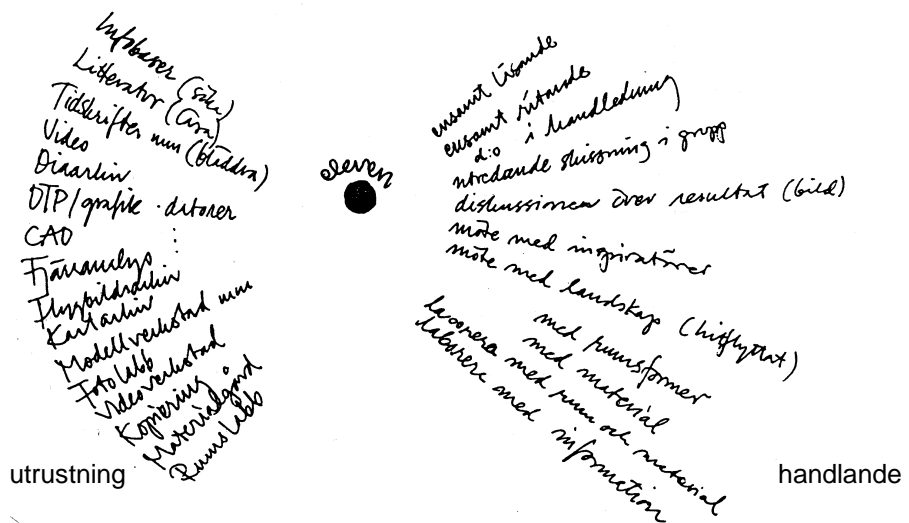 Infobaser (söka)
Litteratur (läsa)
Tidskrifter mm (bläddra)
Video
Diaarkiv
DTP/grafik - datorer
CAD
Fjärranalys
Flygbildsarkiv
Kartarkiv
Modellverkstad mm
Fotolabb
Videoverkstad
Kopiering
Materialgård
Rumslabb
utrustning
eleven
ensamt läsande
ensamt ritande
d:o i handledning
utredande skissning i grupp
diskussioner över resultat (bild)
möte med inspiratörer
möte med landskap (hitflyttat)
med rumsformer
med material
laborera med rum och material
laborera med information
handlande